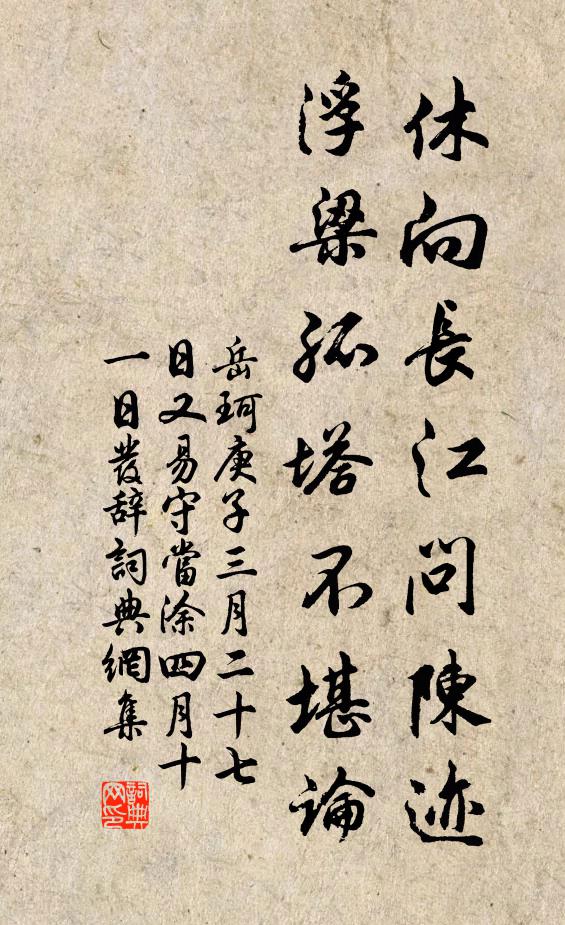 休向長江問陳迹
浮梁孤塔不堪論
岳珂庚子三月二十七
日又易守當涂四月十
一日發辭詞典網集
詞典
网印